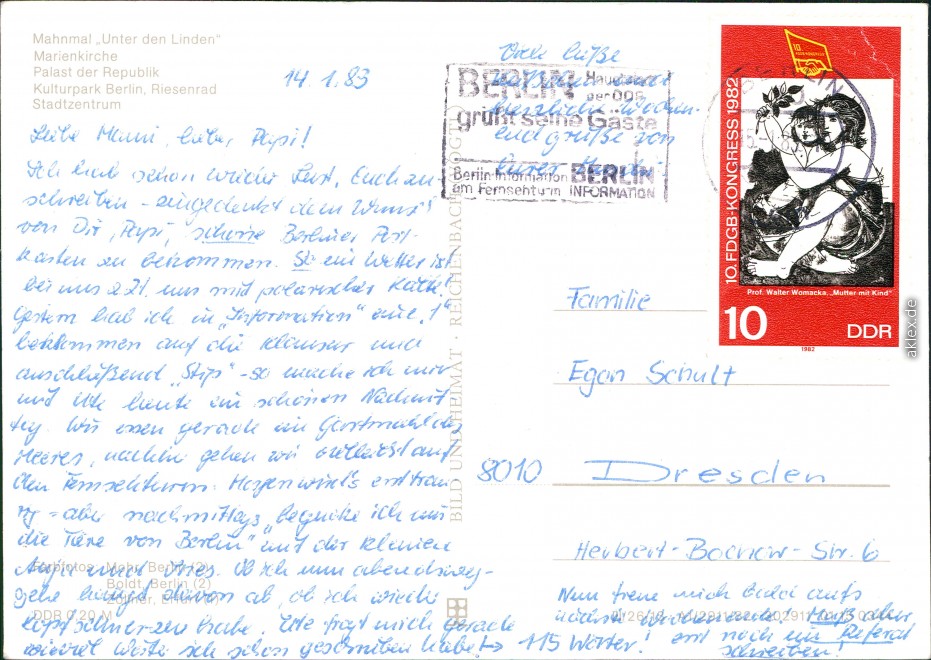 Mahnmal „Unter den Linden"
Marienkirche
Palast der Republik
Kulturpark Berlin, Riesenrad
Stadtzentrum
14.1.83
Liebe Mami, lieber Papi!
Ich hab schon wieder Lust, Euch zu
schreiben - eingedenk dem Wunsch
von Dir, Papi, schöne Berliner Post-
karten zu bekommen. So ein Wetter ist
bei uns z.Zt. uns mit polarischer Kälte.
Gestern hab ich in „Information" eine „1"
bekommen auf die Klausur und
anschließend „Stips" - so mache ich mir
mit Ute heute ein schönen Nachmit
tag. Wir essen gerade im Gastmahl des
Meeres, nachher gehen wir vielleicht auf
den Fernsehturm. Morgen wird's erst
- aber nachmittags „begucke ich mir
die Tiere von Berlin" mit der kleinen
und Ob ich nun abends weg-
gehe hängt davon ab, ob ich wieder
Kopfschmerzen habe. Ute fragt mich gerade
wieviel Worte ich schon geschrieben habe! → 115 Wörter!
Farbfotos: Mohr, Berlin (2)
Boldt, Berlin (2)
DDR 0,20 M
BILD UND HEIMAT · REICHENBACH (VOGTL)
Viele liebe
herzliche Wochen-
endgrüße von
Eurer
BERLIN Hauptstadt
der DDR
grüßt seine Gäste
Berlin-Information BERLIN
am Fernsehturm INFORMATION
BERLIN
10. FDGB-KONGRESS 1982
Prof. Walter Womacka, „Mutter mit Kind"
10 DDR
1982
aklex.de
Familie
Egon Schult
8010 Dresden
Herbert-Bochow-Str. 6
Nun freue mich aufs
nächste Wochenende. Muß aber
erst noch ein Referat
schreiben!